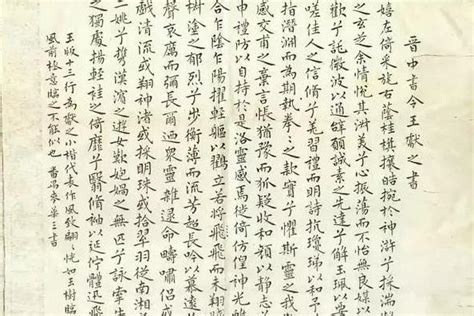 晋中書令王獻之書
嬉左倚采旄右蔭桂旗攘皓捥於神滸兮採湍
之玄芝余情悦其淑美兮心振蕩而不怡無良媒以
歡兮託微波以通辭願誠素之先達兮解玉珮以
嗟佳人之信脩兮羌習禮而明詩抗瓊珶以和予
指潛淵而為期執拳〻之款實兮懼斯靈之我
感交甫之棄言悵猶豫而狐疑收和顔以静志
申禮防以自持於是洛靈感焉徙倚仿偟神光離
合乍陰乍陽擢輕軀以鶴立若將飛而未翔
樹塗之郁烈兮步衡薄而流芳超長吟以慕遠
聲哀厲而彌長爾迺衆靈雜遝命疇嘯侶或
戲清流或翔神渚或採明珠或拾翠羽從南湘
二姚兮攜漢濱之遊女歎匏媧之無匹兮詠牽
之獨處揚輕袿之倚靡兮翳脩袖以延佇體迅飛
玉版十三行為獻之小楷代表作風致翩〻恍如玉樹臨
風前 意臨之不能似也 番禺麥華三書